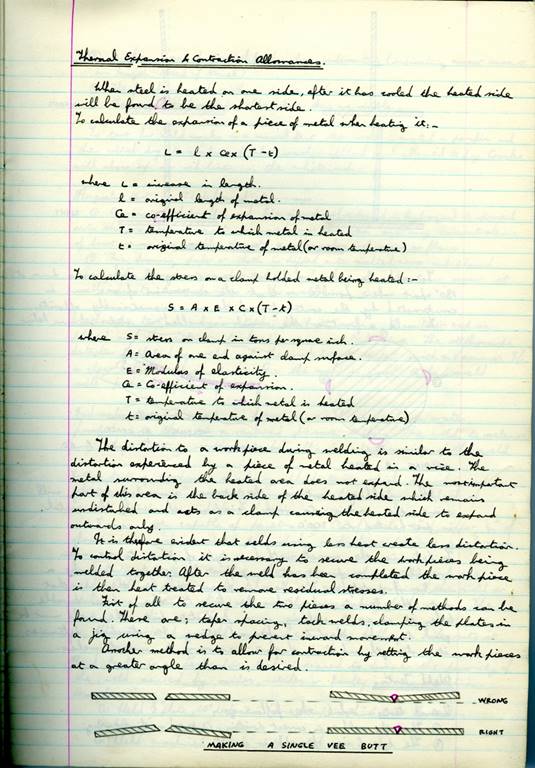 Thermal Expansion & Contraction Allowances.
When steel is heated on one side, after it has cooled the heated side
will be found to be the shortest side.
To calculate the expansion of a piece of metal when heating it:-
L = l x Ce x (T - t)
where L = increase in length.
l = original length of metal.
Ce = co-efficient of expansion of metal
T = temperature to which metal is heated
t = original temperature of metal (or room temperature)
To calculate the stress on a clamp holded metal being heated :-
S = A x E x C x (T - t)
where S = stress on clamp in tons per square inch.
A = Area of one end against clamp surface.
E = Modulas of elasticity.
Ce = Co-efficient of expansion.
T = temperature to which metal is heated
t = original temperature of metal (or room temperature)
The distortion to a workpiece during welding is similar to the
distortion experienced by a piece of metal heated in a vice. The
metal surrounding the heated area does not expand. The most important
part of this area is the back side of the heated side which remains
undisturbed and acts as a clamp causing the heated side to expand
outwards only.
It is therefore evident that welds using less heat create less distortion.
To control distortion it is necessary to secure the workpieces being
welded together. After the weld has been completed the work piece
is then heat treated to remove residual stresses.
First of all to secure the two pieces a number of methods can be
found. These are; taper spacing, tack welds, clamping the plates in
a jig using a wedge to prevent inward movement.
Another method is to allow for contraction by setting the work pieces
at a greater angle than is desired.
WRONG
RIGHT
MAKING A SINGLE VEE BUTT